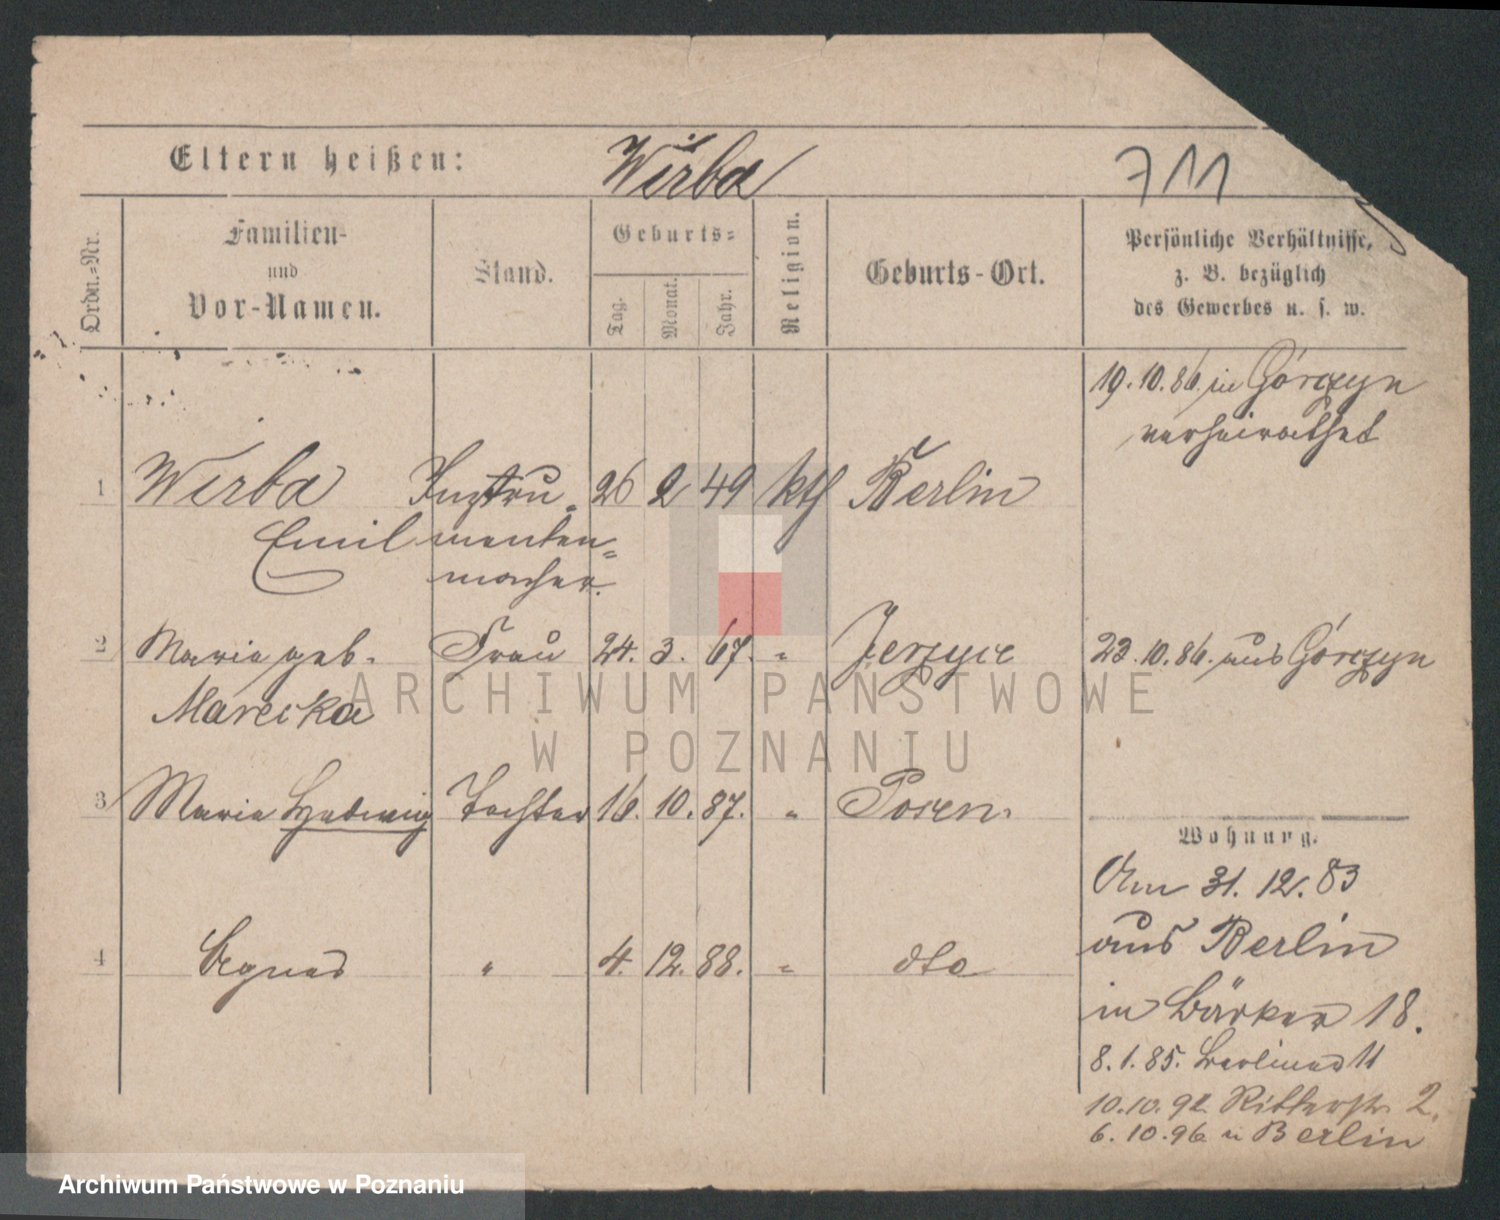 Eltern heißen: Wirba 711
Ordn.-Nr.
Familien-
und
Vor-Namen.
Stand.
Geburts-
Tag. Monat. Jahr.
Religion.
Geburts-Ort.
Persönliche Verhältnisse,
z. B. bezüglich
des Gewerbes u. s. w.
19.10.86. in Górczyn
verheirathet
1 Wirba Instru- 26 2 49 kth Berlin
Emil menten-
macher.
2 Maria geb. Frau 24. 3. 67. " Jerzyce 23.10.86. aus Górczyn
Marecka
3 Maria Hedwig Tochter 16. 10. 87. " Posen.
4 Agnes " 4. 12. 88. " dto
Wohnung.
Am 31. 12. 83
aus Berlin
in Bäcker 18.
8.1.85. Berliner 11
10.10.92 Ritterstr. 2.
6.10.96 n Berlin
ARCHIWUM PAŃSTWOWE
W POZNANIU
Archiwum Państwowe w Poznaniu